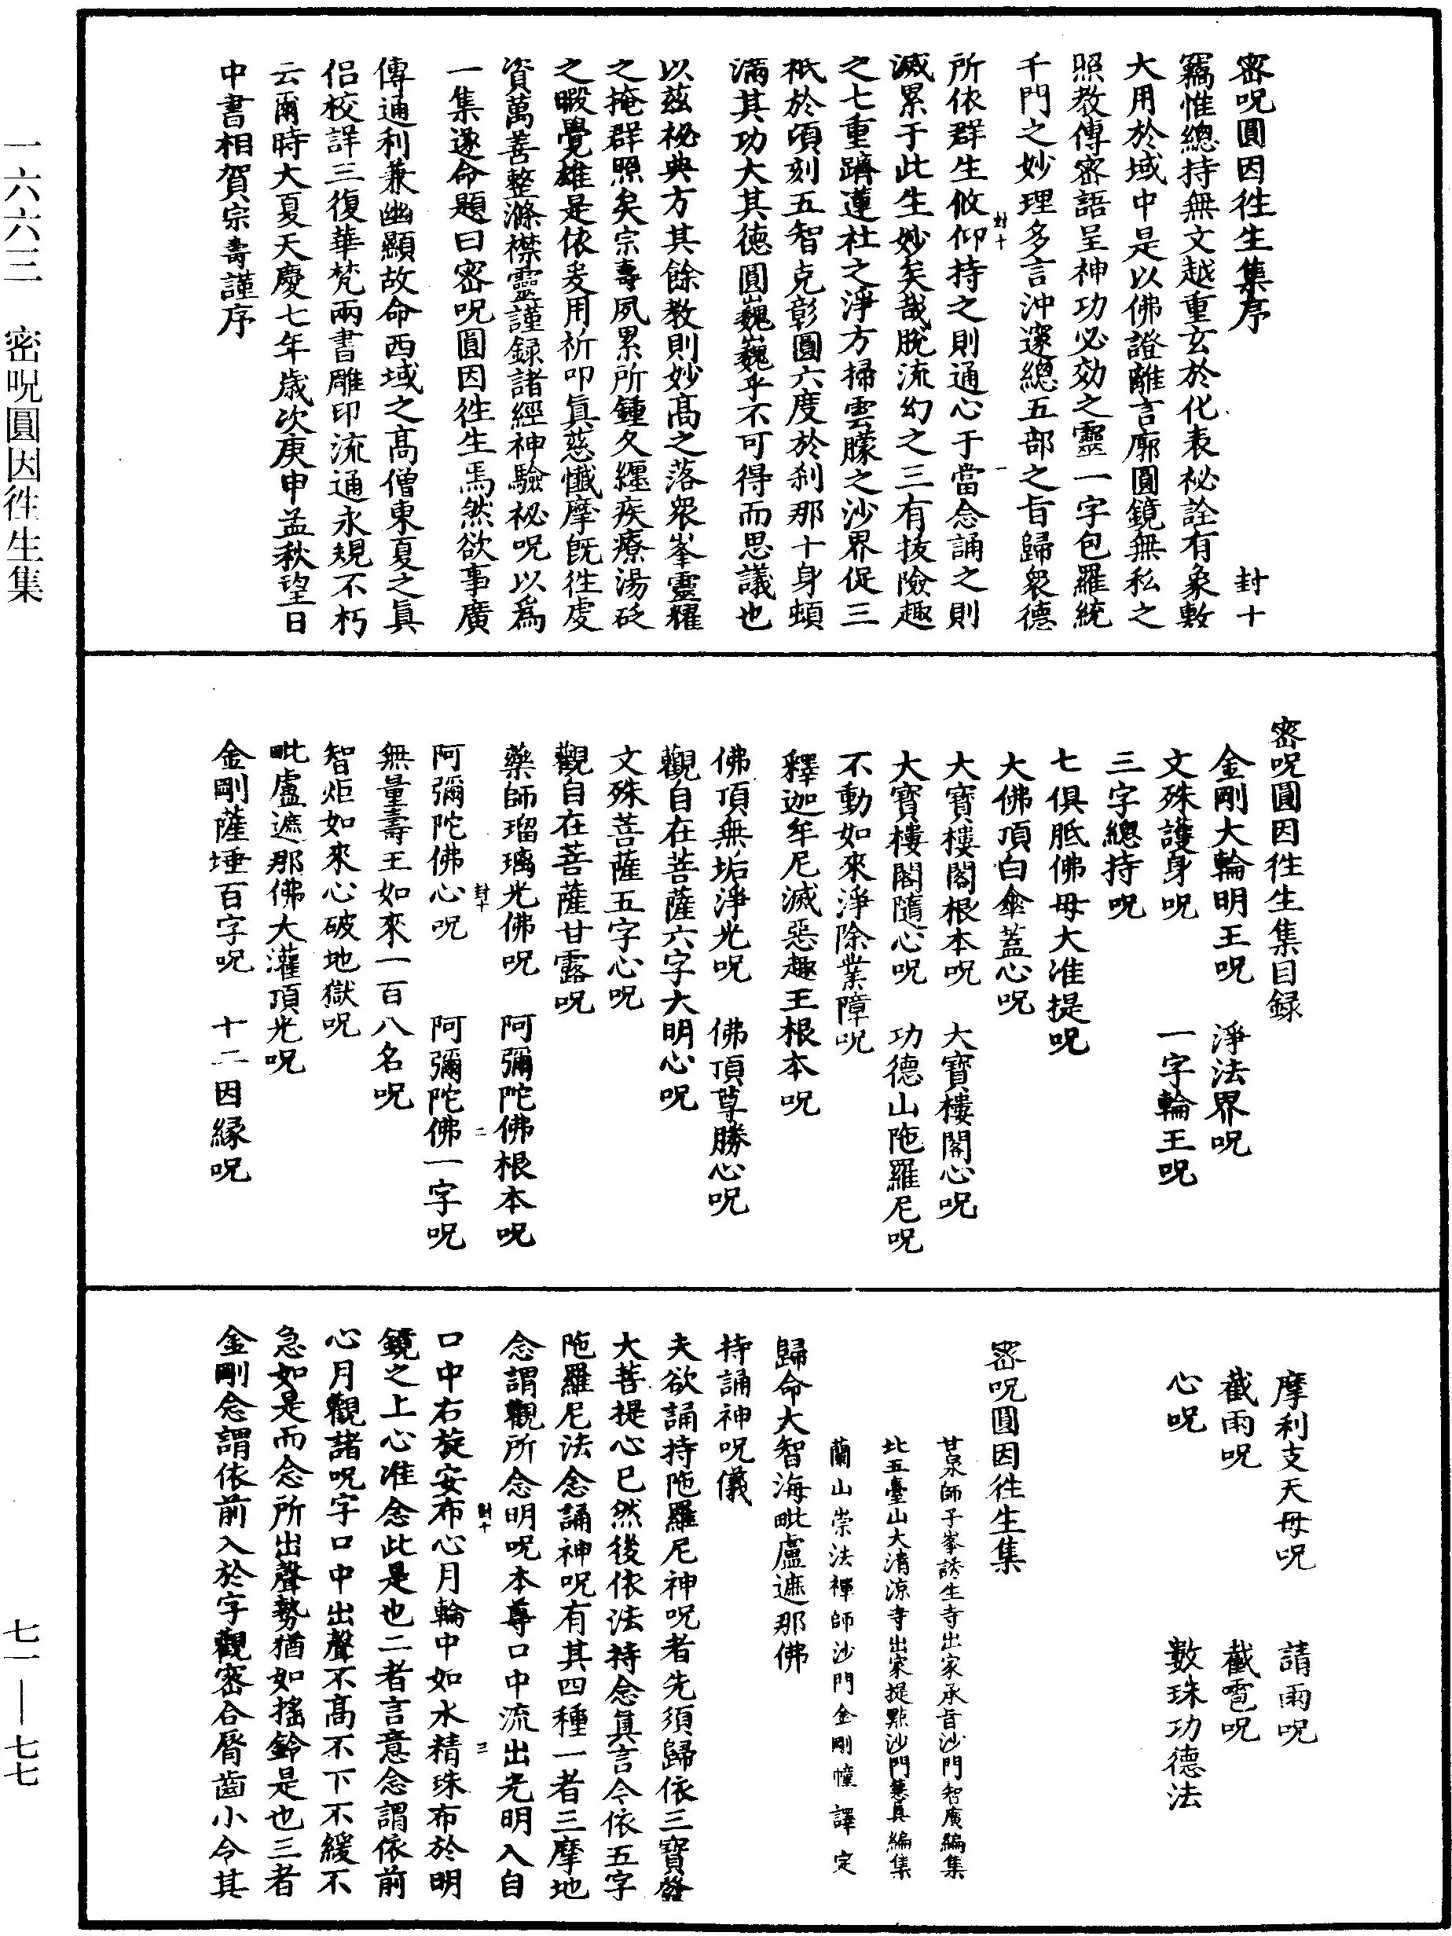 密呪圓因徃生集序　封十
竊惟總持無文越重玄於化表秘詮有象敷
大用於域中是以佛證離言廓圓鏡無私之
照教傳密語呈神功必効之靈一字包羅統
千門之妙理多言沖邃總五部之旨歸衆德
所依群生攸仰持之則通心于當念誦之則
封十
一
滅累于此生妙矣哉脫流幻之三有拔險趣
之七重躋蓮社之淨方掃雲朦之沙界促三
祇於頃刻五智克彰圓六度於刹那十身頓
滿其功大其德圓巍巍乎不可得而思議也
以兹祕典方其餘教則妙髙之落衆峯靈耀
之掩群照矣宗壽夙累所鍾久纒疾療湯砭
之暇覺雄是依爰用祈叩眞慈懺摩旣徃虔
資萬善整滌襟靈謹録諸經神驗祕呪以爲
一集遂命題曰密呪圓因徃生焉然欲事廣
傳通利兼幽顯故命西域之髙僧東夏之眞
侣校詳三復華梵兩書雕印流通永規不朽
云爾時大夏天慶七年歲次庚申孟秋望日
中書相賀宗壽謹序
密呪圓因徃生集目録
金剛大輪明王呪　淨法界呪
文殊護身呪　一字輪王呪
三字總持呪
七俱胝佛母大准提呪
大佛頂白傘蓋心呪
大寶樓閣根本呪　大寶樓閣心呪
大寶樓閣隨心呪　功德山陁羅尼呪
不動如來淨除業障呪
釋迦牟尼滅惡趣王根本呪
佛頂無垢淨光呪　佛頂尊勝心呪
觀自在菩薩六字大明心呪
文殊菩薩五字心呪
觀自在菩薩甘露呪
藥師瑠璃光佛呪　阿彌陀佛根本呪
封十
二
阿彌陀佛心呪　阿彌陀佛一字呪
無量壽王如來一百八名呪
智炬如來心破地獄呪
毗盧遮那佛大灌頂光呪
金剛薩埵百字呪　十二因縁呪
摩利支天母呪　請雨呪
截雨呪　截雹呪
心呪　數珠功德法
密呪圓因徃生集
甘泉師子峯誘生寺出家承旨沙門智廣編集
北五臺山大清涼寺出家提點沙門慧真編集
蘭山崇法禪師沙門金剛幢譯定
歸命大智海毗盧遮那佛
持誦神呪儀
夫欲誦持陁羅尼神呪者先須歸依三寶發
大菩提心已然後依法持念眞言今依五字
陁羅尼法念誦神呪有其四種一者三摩地
念謂觀所念明呪本尊口中流出光明入自
封十
三
口中右旋安布心月輪中如水精珠布於明
鏡之上心准念此是也二者言意念謂依前
心月觀諸呪字口中出聲不髙不下不緩不
急如是而念所出聲勢猶如搖鈴是也三者
金剛念謂依前入於字觀密合脣齒小令其
一六六三　密呪圓因徃生集
七一——七七